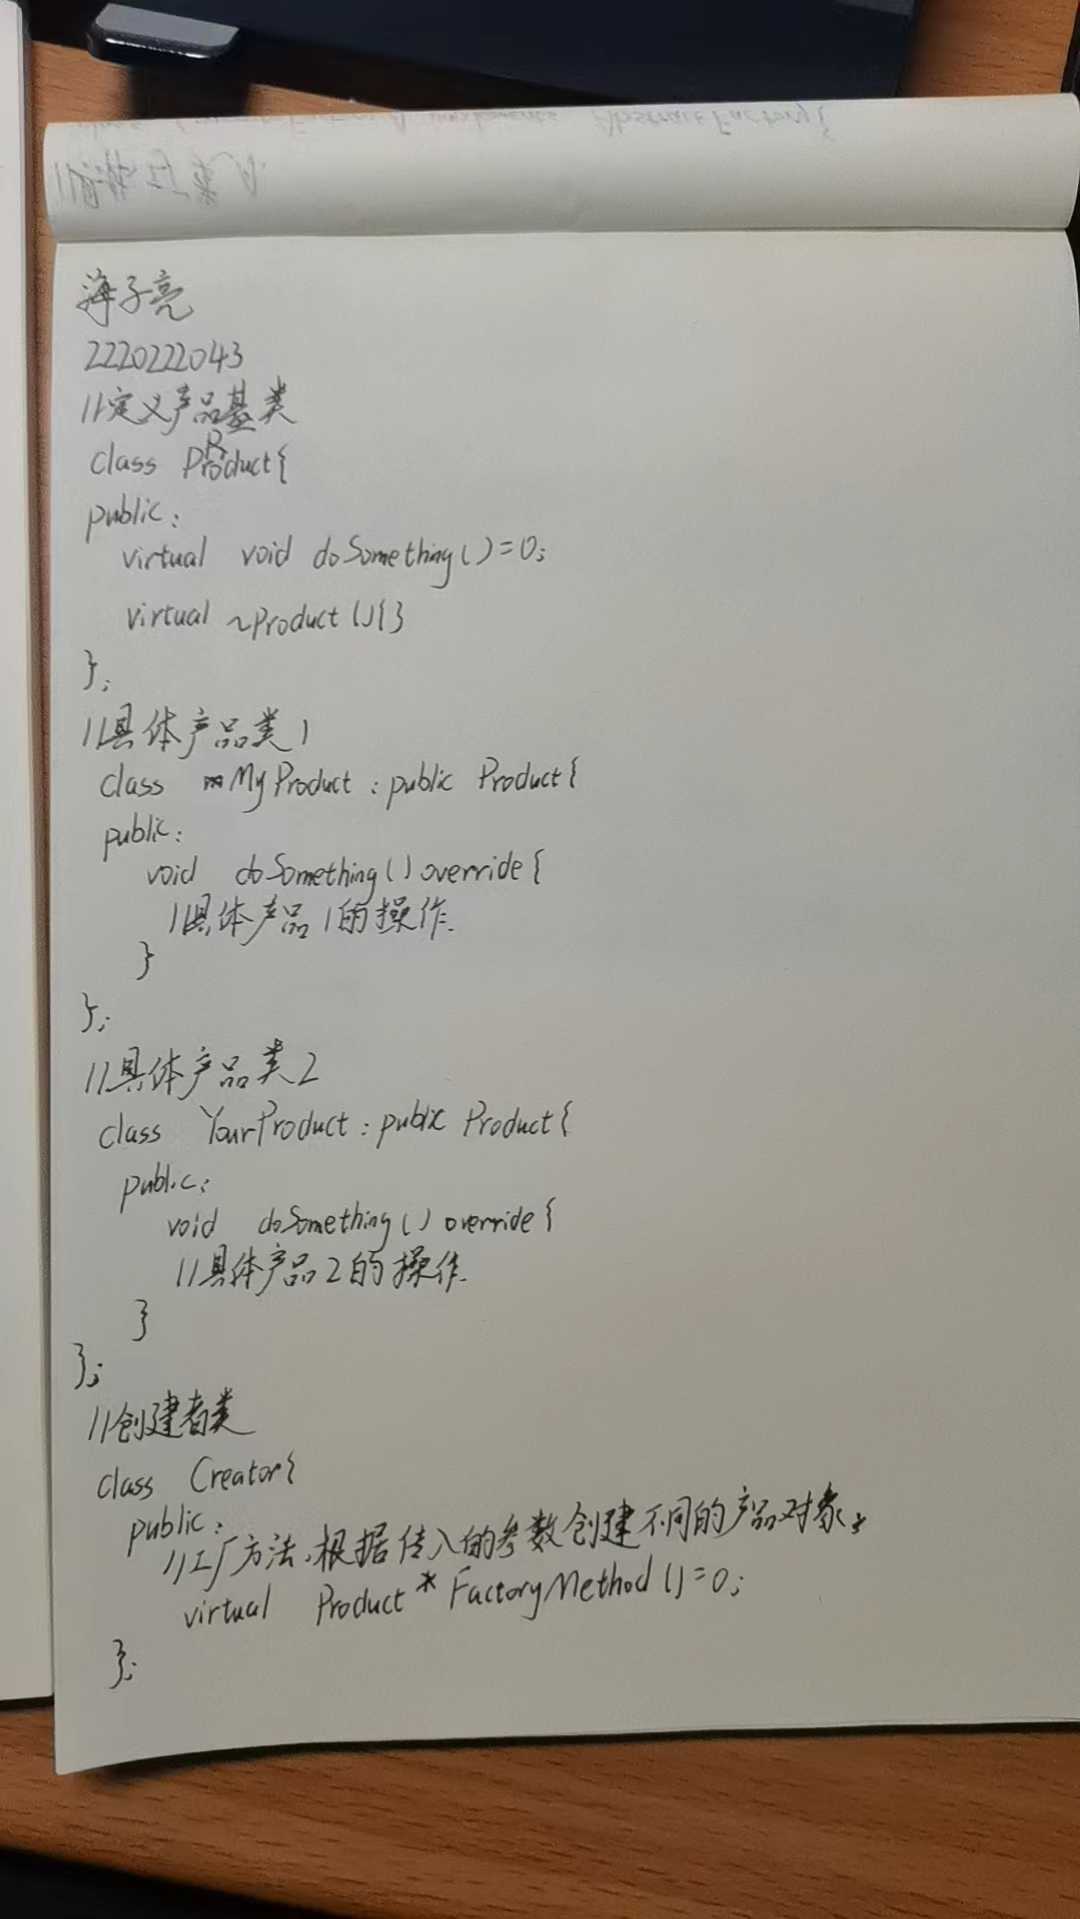 子亮
2220222043
//定义产品基类
class Product{
public:
virtual void doSomething()=0;
virtual ~Product(){}
};
//具体产品类1
class MyProduct : public Product{
public:
void doSomething() override{
//具体产品1的操作.
}
};
//具体产品类2
class YourProduct : public Product{
public:
void doSomething() override{
//具体产品2的操作.
}
};
//创建者类
class Creator{
public:
//工厂方法,根据传入的参数创建不同的产品对象,
virtual Product* FactoryMethod()=0;
};